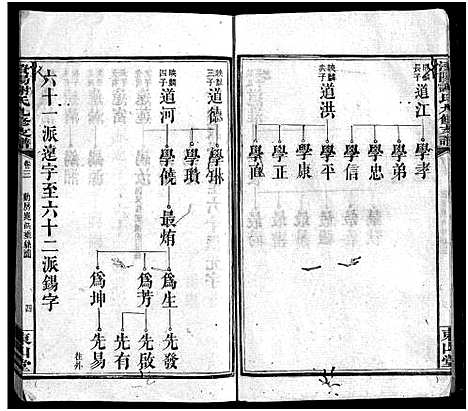 映麟長子
道江
學孝
學弟
學忠
學信
映麟次子
道洪
學平
學康
學正
學直
映麟三子
道德
學琳
學瓚
映麟四子
道河
學僥
最炳
為生
先發
為芳
先啟
先有
為坤
先易
往外
六十一派遠字至六十二派錫字
卷三
四
東山堂